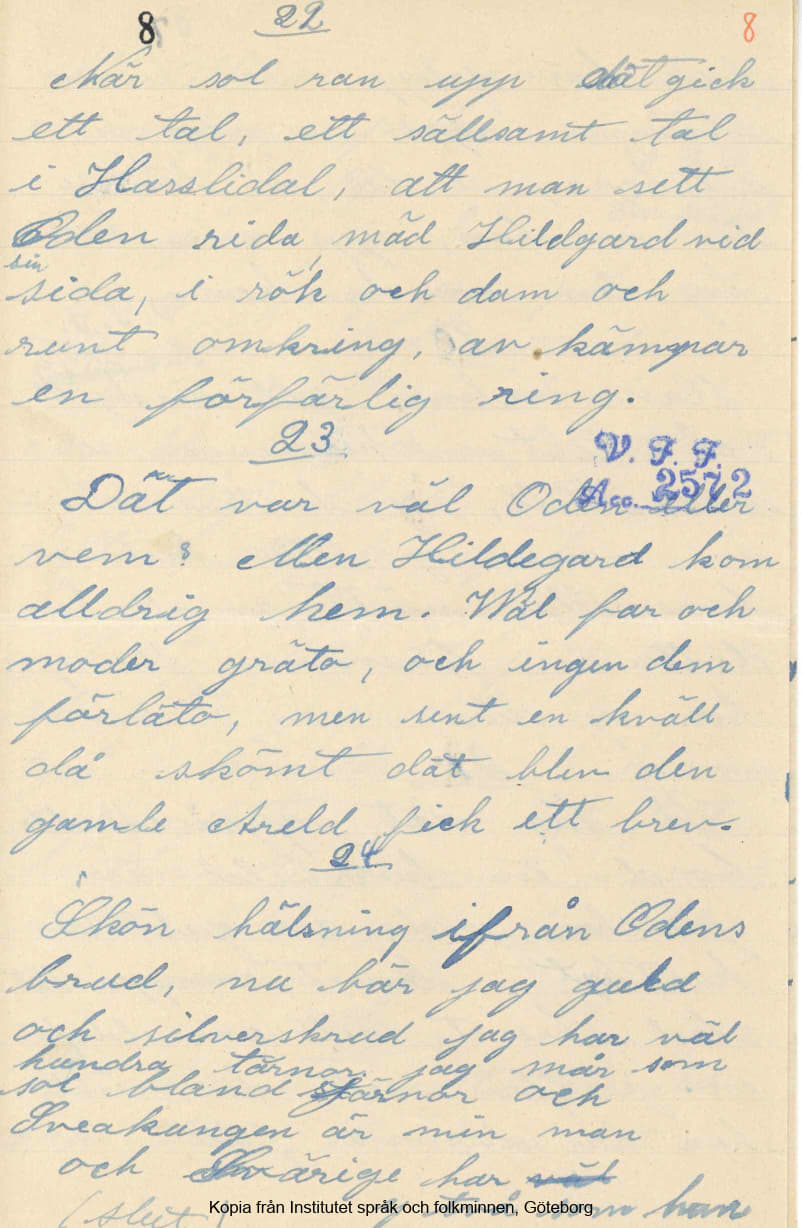 8 22 8
När sol ran upp dät gick
ett tal, ett sällsamt tal
i Hasslidal, att man sett
Oden rida, mäd Hildgard vid
sin
sida, i rök och dam och
runt omkring, av kämpar
en förfärlig ring.
23
V. F. F.
Acc. 2572
Dät var väl Oden eller
vem? Men Hildegard kom
alldrig hem. Wäl far och
moder gräto, och ingen dem
förläto, men sent en kväll
då skömt dät blev den
gamle Areld fick ett brev.
24
Skön hälsning ifrån Odens
brud, nu bär jag guld
och silverskrud jag har väl
hundra tärnor, jag mår som
sol bland stjärnor och
Sveakungen är min man
och Svärige har väl
som han
(slut)
Kopia från Institutet språk och folkminnen, Göteborg